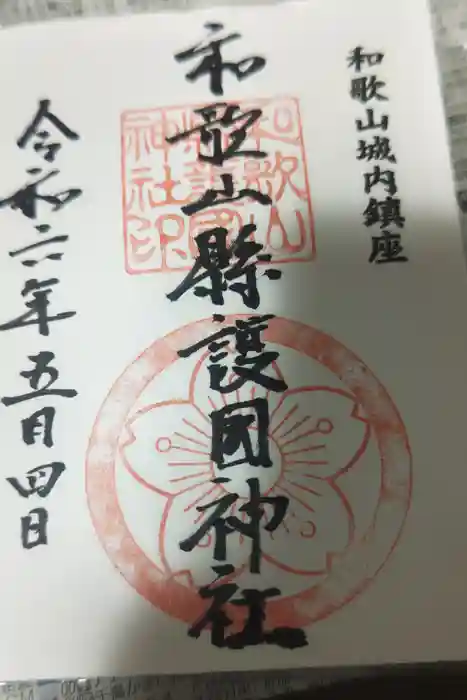 和歌山城内鎮座
和歌山縣護国神社
和歌山
縣護國
神社印
令和六年五月四日